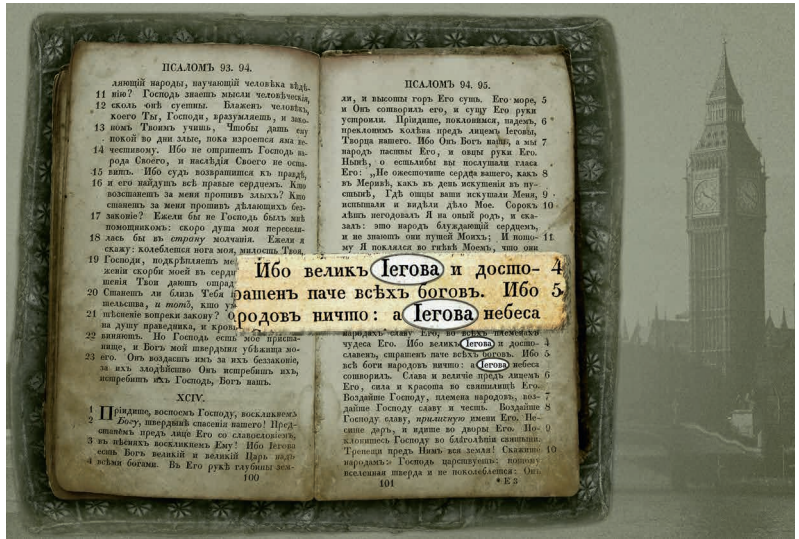 ПСАЛОМЪ 93. 94.
ляющій народы, научающій человѣка вѣдѣ-
11 нію? Господь знаетъ мысли человѣческія,
12 сколь онѣ суетны. Блаженъ человѣкъ,
коего Ты, Господи, вразумляешь, и зако-
13 номъ Твоимъ учишь, Чтобы дать ему
покой во дни злые, пока изроется яма не-
14 честивому. Ибо не отринетъ Господь на-
рода Своего, и наслѣдія Своего не оста-
15 витъ. Ибо судъ возвратится къ правдѣ,
16 и его найдутъ всѣ правые сердцемъ. Кто
возстанетъ за меня противъ злыхъ? Кто
станетъ за меня противъ дѣлающихъ без-
17 законіе? Ежели бы не Господь былъ мнѣ
помощникомъ: скоро душа моя переселя-
18 лась бы въ страну молчанія. Ежели я
скажу: колеблется нога моя, милость Твоя,
19 Господи, подкрѣпляетъ
женіи скорби моей въ
шенія Твои даютъ
20 Станетъ ли близь Тебя
тельства, и тотъ, кто
21 тѣсненіе вопреки закону?
на душу праведника, и
22 виняютъ. Но Господь есть мое приста-
нище, и Богъ мой твердыня убѣжища мо-
23 его. Онъ воздастъ имъ за ихъ беззаконіе,
за ихъ злодѣйство Онъ истребитъ ихъ,
истребитъ ихъ Господь, Богъ нашъ.
XCIV.
1 Пріидите, воспоемъ Господу, воскликнемъ
2 Богу, твердынѣ спасенія нашего! Пред-
станемъ предъ лице Его со славословіемъ,
3 въ пѣсняхъ воскликнемъ Ему! Ибо Іегова
есть Богъ великій и великій Царь надъ
4 всѣми богами. Въ Его рукѣ глубины зем-
100
ПСАЛОМЪ 94. 95.
ли, и высоты горъ Его суть. Его море, 5
и Онъ сотворилъ его, и сушу Его руки
устроили. Пріидите, поклонимся, падемъ, 6
преклонимъ колѣна предъ лицемъ Іеговы,
Творца нашего. Ибо Онъ Богъ нашъ, а мы 7
народъ паствы Его, и овцы руки Его.
Нынѣ, о естьлибы вы послушали гласа
Его: „Не ожесточите сердца вашего, какъ 8
въ Меривѣ, какъ въ день искушенія въ пу-
стынѣ, Гдѣ отцы ваши искушали Меня, 9
испытали и видѣли дѣло Мое. Сорокъ 10
лѣтъ негодовалъ Я на оный родъ, и ска-
залъ: это народъ блуждающій сердцемъ,
и не знаютъ они путей Моихъ; И пото- 11
му Я поклялся во гнѣвѣ Моемъ, что они
Ибо великъ Іегова и досто- 4
рашенъ паче всѣхъ боговъ. Ибо 5
родовъ ничто: а Іегова небеса
народахъ славу Его, во всѣхъ племенахъ
чудеса Его. Ибо великъ Іегова и досто- 4
славенъ, страшенъ паче всѣхъ боговъ. Ибо 5
всѣ боги народовъ ничто: а Іегова небеса
сотворилъ. Слава и величіе предъ лицемъ 6
Его, сила и красота во святилищѣ Его.
Воздайте Господу, племена народовъ, воз- 7
дайте Господу славу и честь. Воздайте 8
Господу славу, приличную имени Его. Не-
сите даръ, и идите во дворы Его. По- 9
клонитесь Господу во благолѣпіи святыни.
Трепещи предъ Нимъ вся земля! Скажите 10
народамъ: Господь царствуетъ: потому
вселенная тверда и не поколеблется: Онъ
101 * Е 3